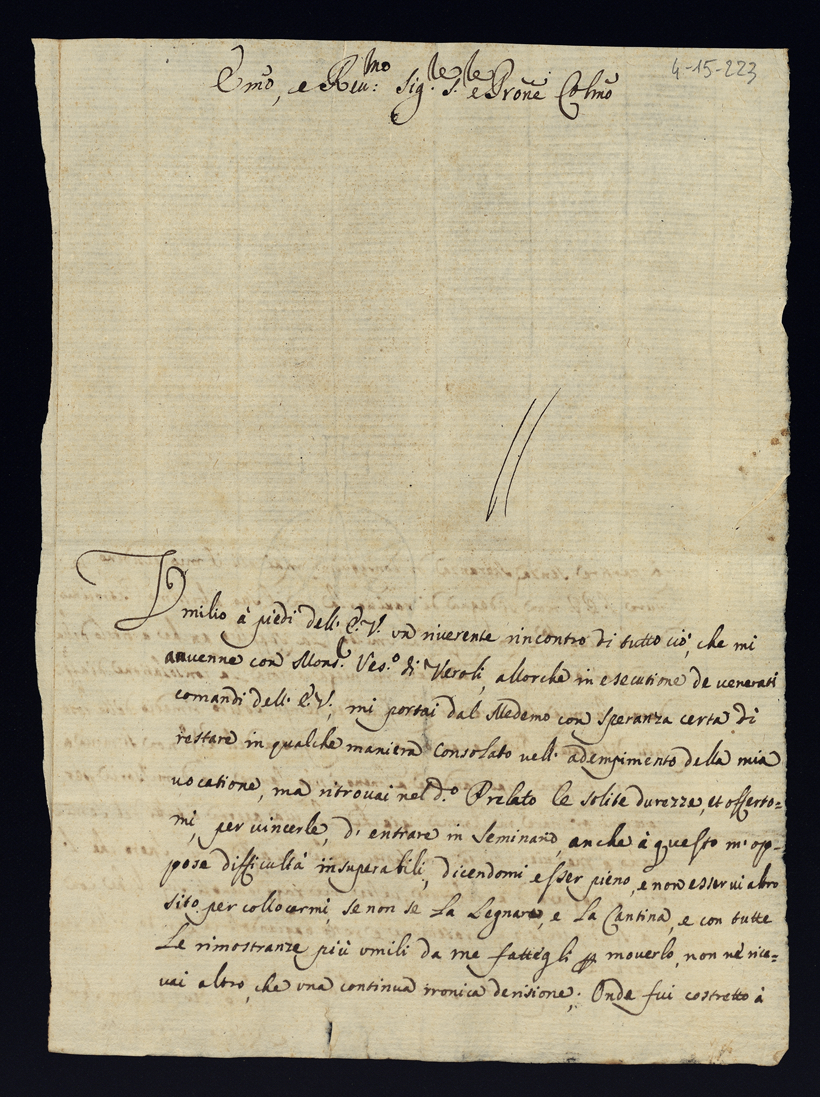 4-15-223
Emo, e Reu:mo Sig.le S.le e Prone Colmo
Vmilio à piedi dell' E.V. vn riuerente rincontro di tutto ciò, che mi
auuenne con Mons.r Ves.o di Veroli, allorche in esecutione de venerati
comandi dell' E.V., mi portai dal Medemo con speranza certa di
restare in qualche maniera consolato nell' adempimento della mia
uocatione, ma ritrouai nel d.o Prelato le solite durezze, et offerto=
mi, per vincerle, d' entrare in Seminario, anche à questo m' op-
pose difficultà insuperabili, dicendomi esser pieno, e non esserui altro
sito per collocarmi, se non se La Legnara, e La Cantina, e con tutte
Le rimostranze più vmili da me fattegli p mouerlo, non nè rica=
uai altro, che vna continua ironica derisione; Onde fui costretto à